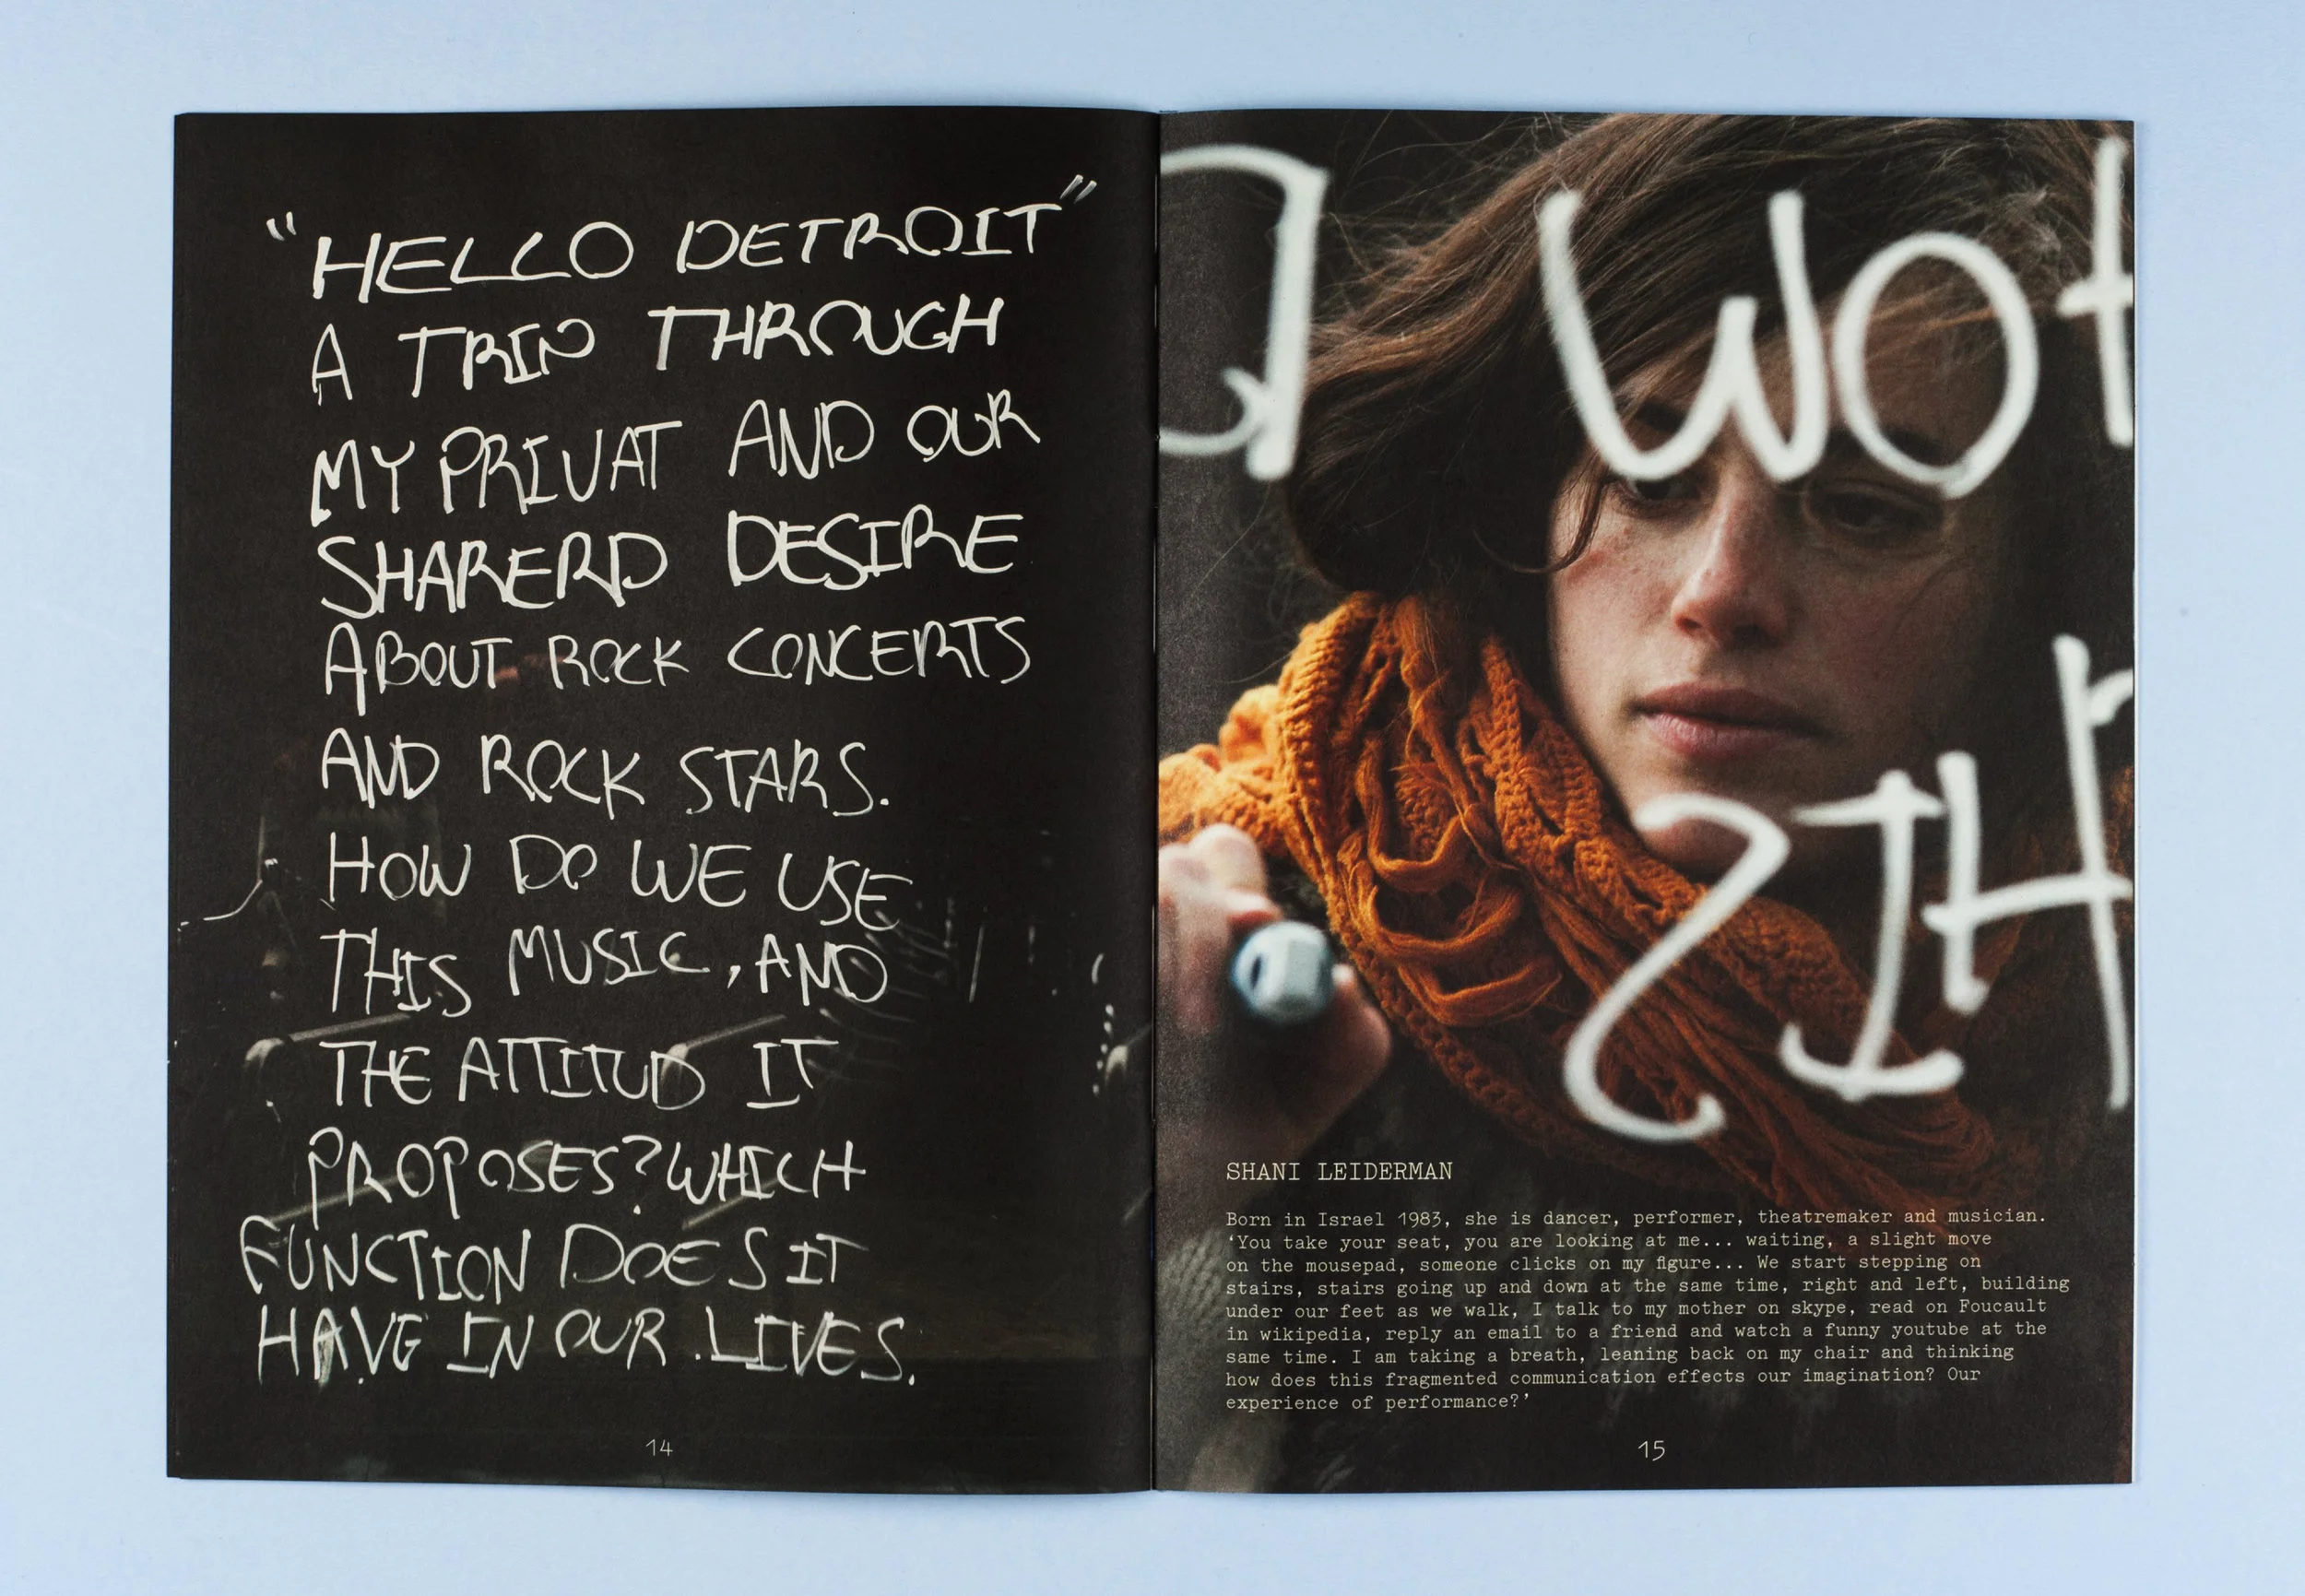 "HELLO DETROIT"
A TRIP THROUGH
MY PRIVAT AND OUR
SHARERD DESIRE
ABOUT ROCK CONCERTS
AND ROCK STARS.
HOW DO WE USE
THIS MUSIC, AND
THE ATTITUD IT
PROPOSES? WHICH
FUNCTION DOES IT
HAVE IN OUR LIVES.
14
WO
SHANI LEIDERMAN
Born in Israel 1983, she is dancer, performer, theatremaker and musician.
'You take your seat, you are looking at me... waiting, a slight move
on the mousepad, someone clicks on my figure... We start stepping on
stairs, stairs going up and down at the same time, right and left, building
under our feet as we walk, I talk to my mother on skype, read on Foucault
in wikipedia, reply an email to a friend and watch a funny youtube at the
same time. I am taking a breath, leaning back on my chair and thinking
how does this fragmented communication effects our imagination? Our
experience of performance?'
15